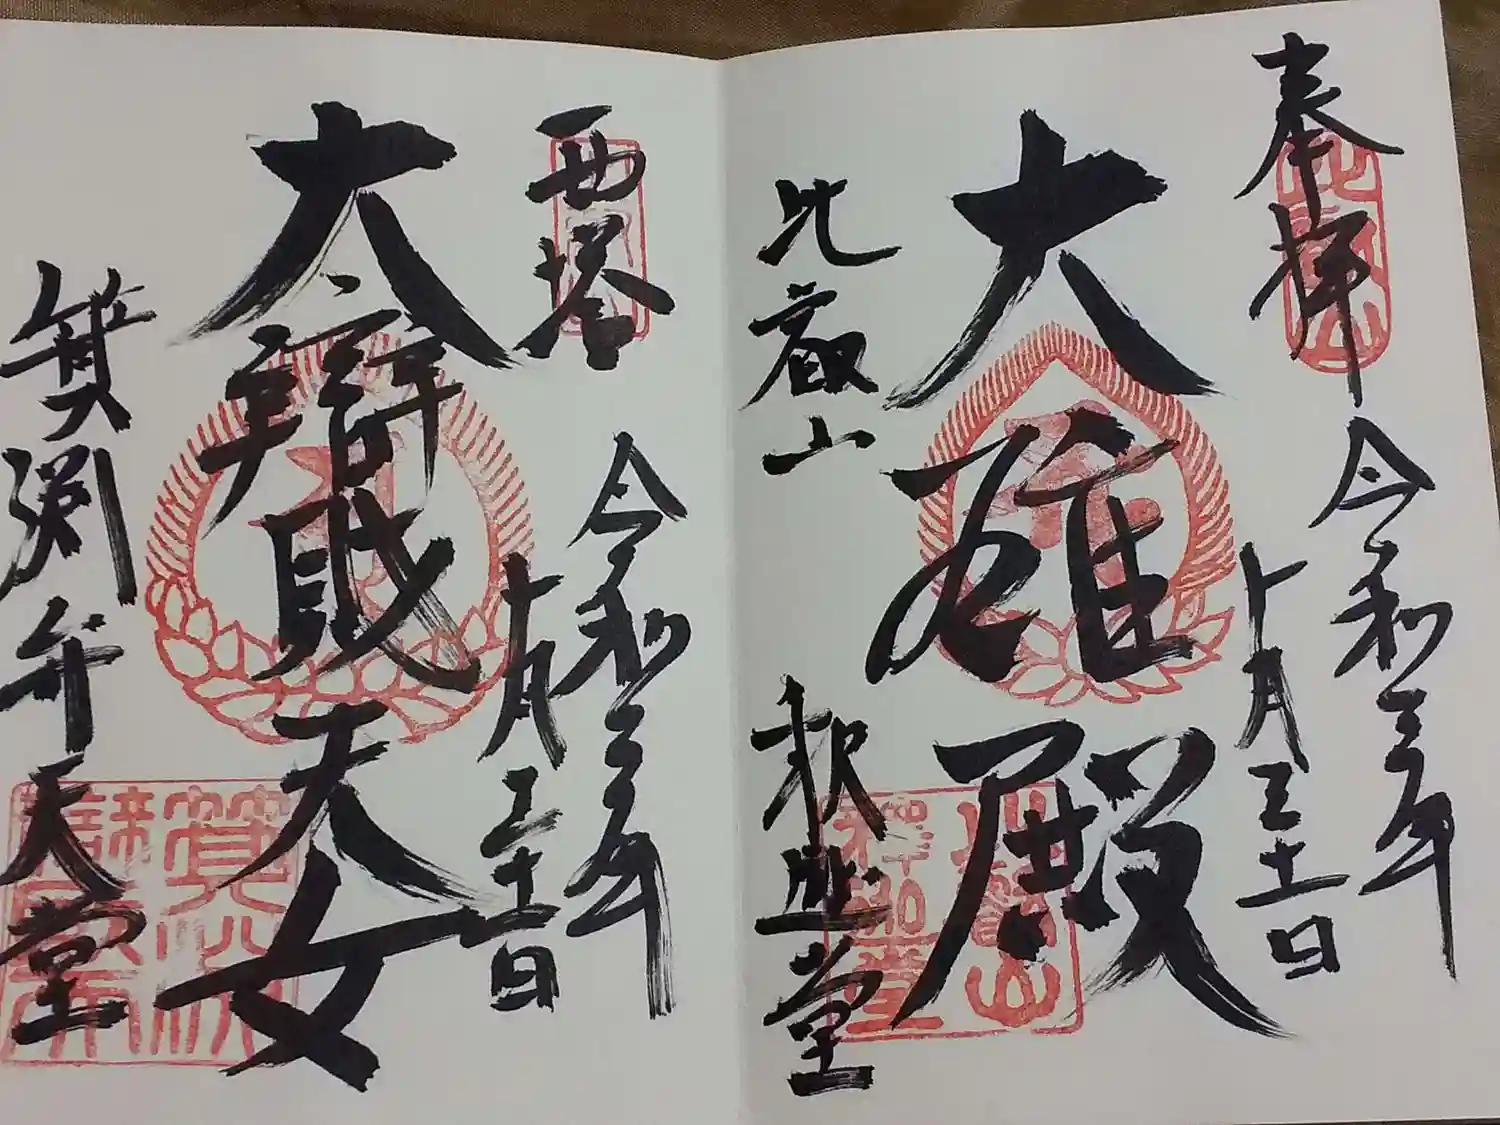 奉拝
令和三年
十月三十一日
大雄殿
比叡山
釈迦堂
西塔
令和三年
十月三十一日
大辯財天女
箕淵弁天堂
比叡山
釋迦堂